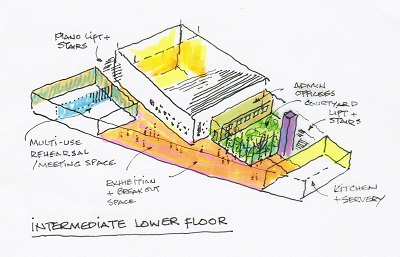 PIANO LIFT +
STAIRS
ADMIN
OFFICES
COURTYARD
LIFT +
STAIRS
MULTI-USE
REHEARSAL
/MEETING SPACE
EXHIBITION
+ BREAK OUT
SPACE
KITCHEN
+ SERVERY
INTERMEDIATE LOWER FLOOR